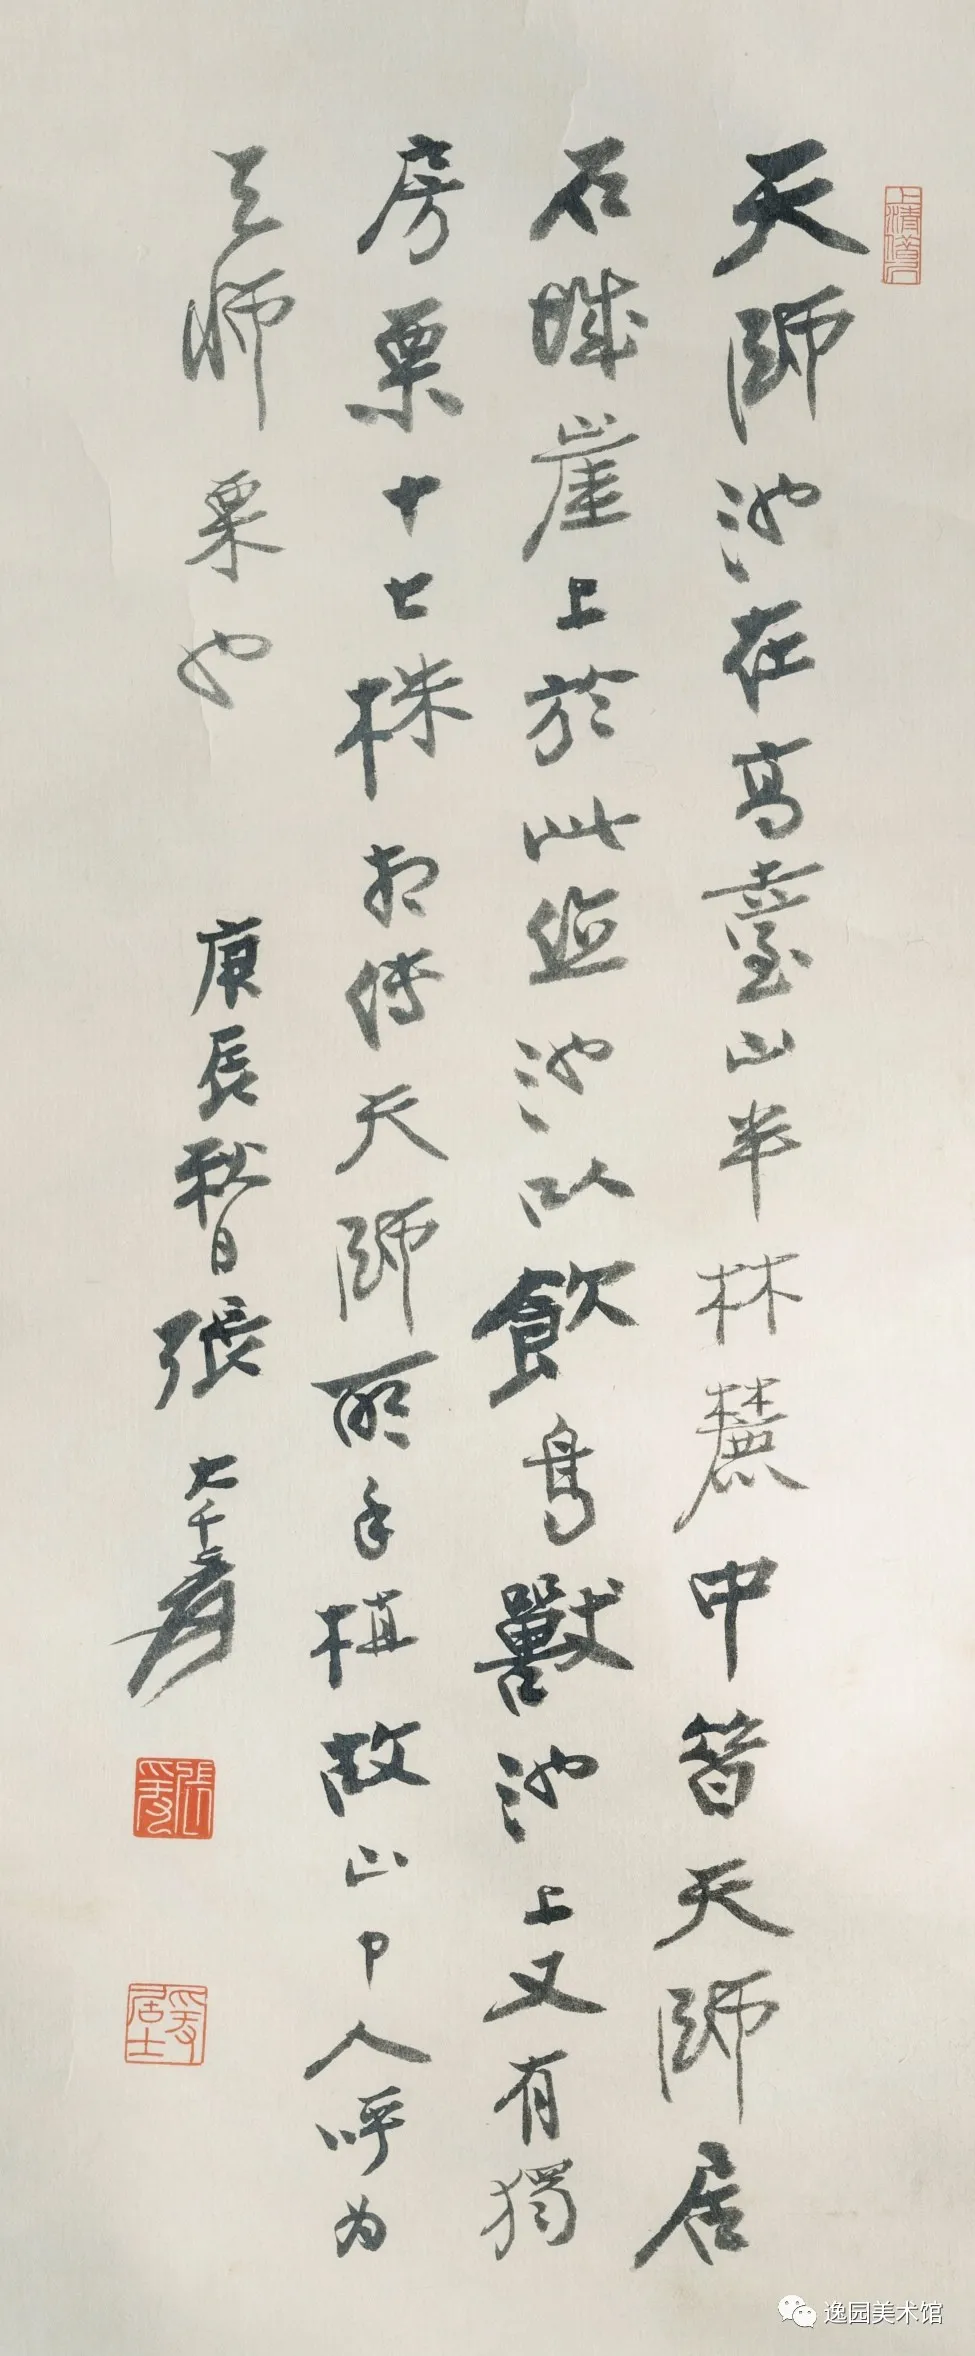 天師池在高臺山半林麓中昝天師居
石城崖上於此鑿池以飲鳥獸池上又有獨
房栗十七株相傳天師所手植故山中人呼為
天師栗也
庚辰秋日張大千爰
張爰
大千居士
逸园美术馆